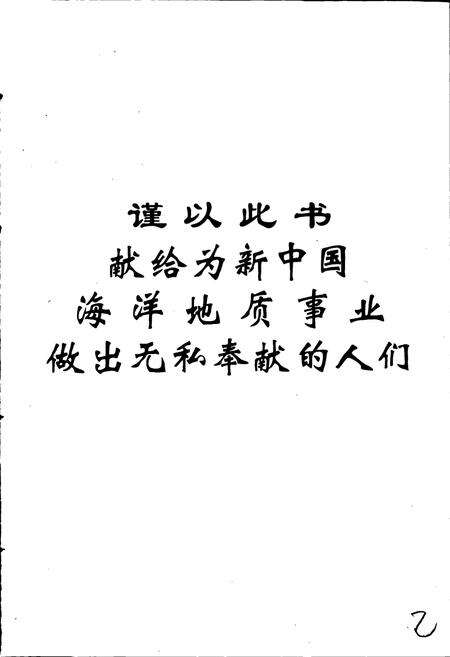 谨以此书
献给为新中国
海洋地质事业
做出无私奉献的人们